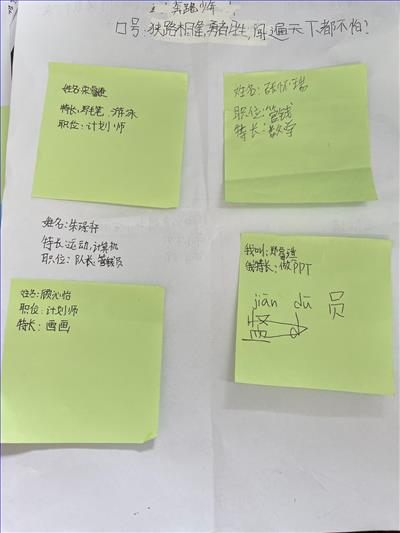 奔跑少年
口号:狭路相逢,勇者胜,闯遍天下都不怕!
姓名:宋
特长:毛笔 游泳
职位:计划师
姓名:张怀瑞
职位:管钱
特长:数学
姓名:朱
特长:运动,计算机
职位:队长,管钱员
我叫:郑
特长:做PPT
jiān dū 员
监
姓名:顾沁怡
职位:计划师
特长:画画